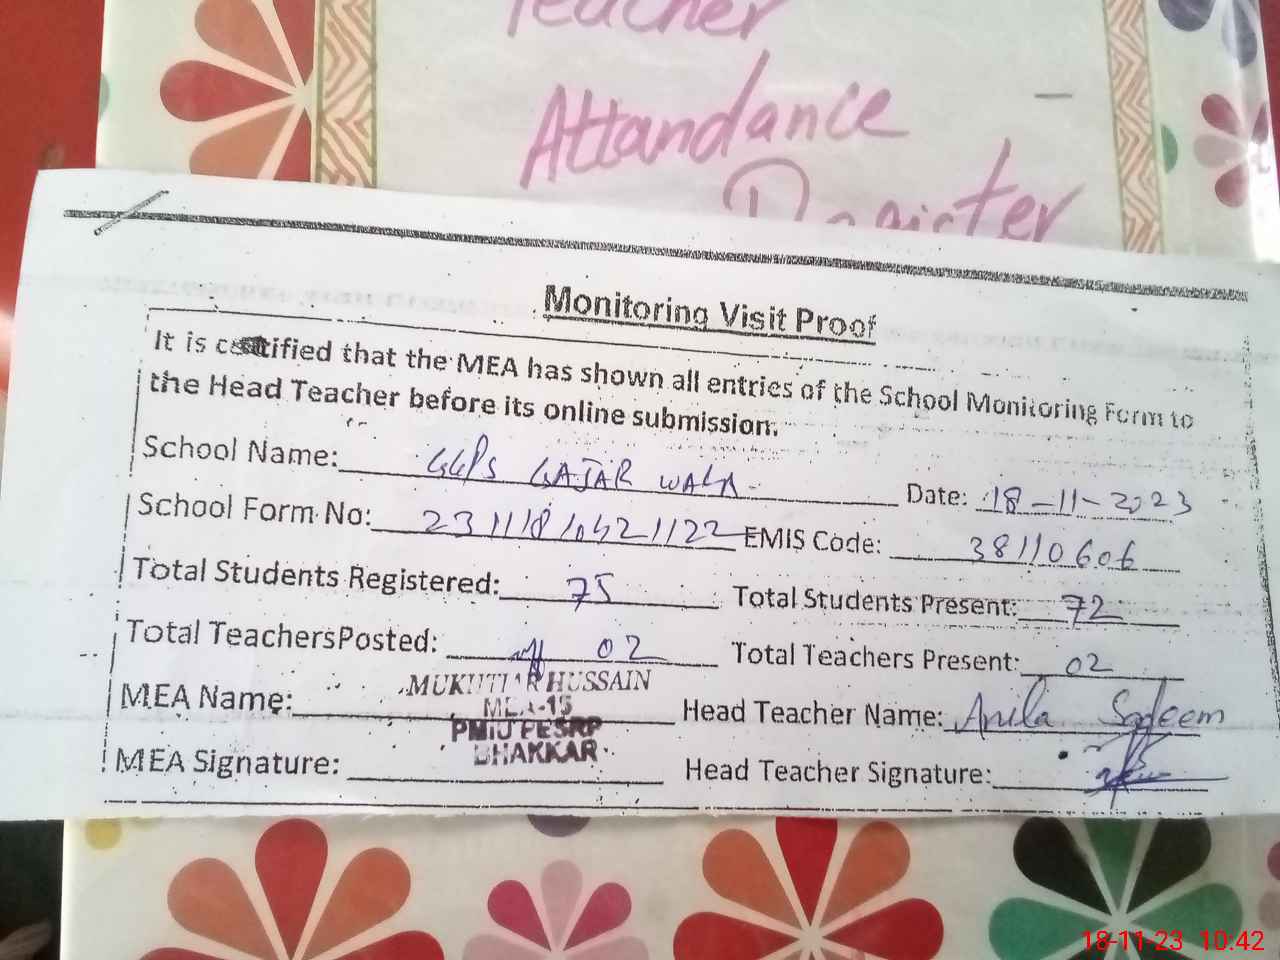 Teacher
Attandance
Register
Monitoring Visit Proof
It is certified that the MEA has shown all entries of the School Monitoring Form to
the Head Teacher before its online submission.
School Name: GGPS GAJAR WALA Date: 18-11-2023
School Form No: EMIS Code: 38110606
Total Students Registered: 75 Total Students Present: 72
Total TeachersPosted: 02 Total Teachers Present: 02
MEA Name: MUKHTIAR HUSSAIN Head Teacher Name: Anila Sadeem
MEA-15
PMIU PESRP
BHAKKAR
MEA Signature: Head Teacher Signature:
18-11-23 10:42